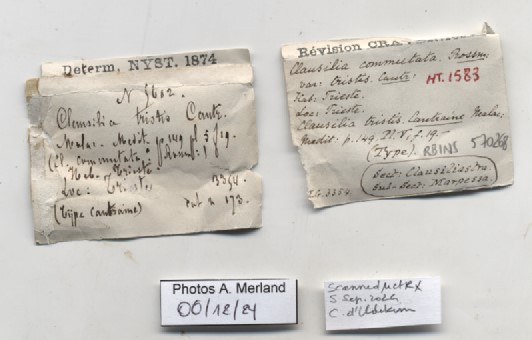 Determ, NYST. 1874
N 5602.
Clausilia tristis Cantr.
Malac. Médit. p. 149 f. 19.
(Cl. commutata
Hab. Trieste
Loc: Trieste
3354.
(Type Cantraine)
Révision
Clausilia commutata. Rossm.
var: tristis. Cantr:
HT. 1583
Hab: Trieste.
Loc: Trieste.
Clausilia tristis. Cantraine Malac:
Medit: p. 149 Pl. 5, f. 19.
(Type).
RBINS 570268
Sect: Clausiliastra
sub-sect: Marpessa.
I.G. 3354.
Photos A. Merland
00/12/24
Scanned µCt RX
5 Sep. 2024
C. d'Udekem